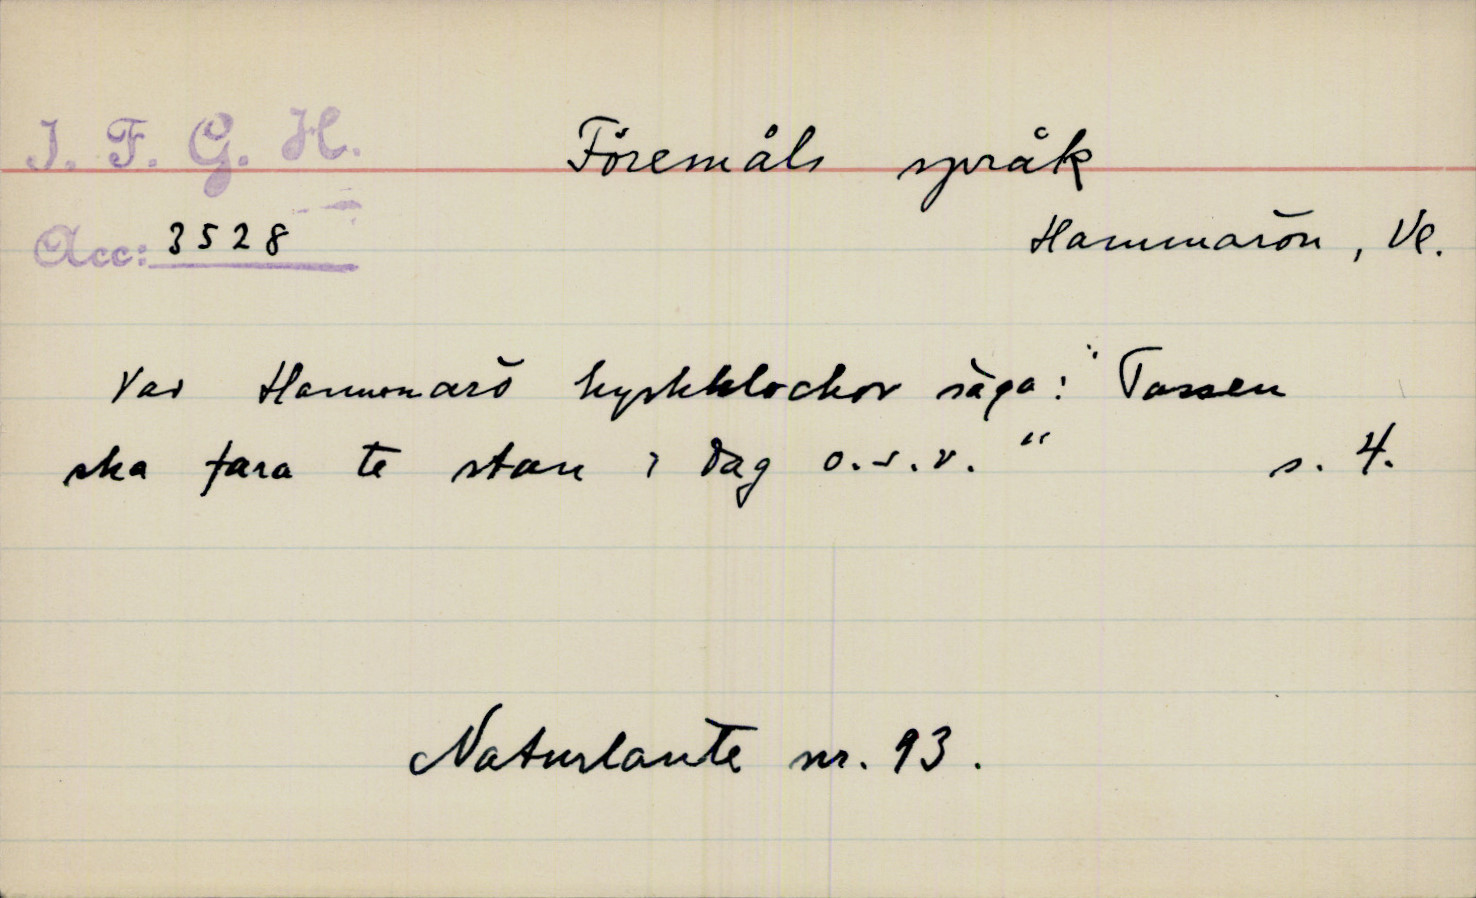 I. F. G. H.
Föremåls språk
Acc: 3528
Hammarön, Vl.
Vad Hammarö kyrkklockor säga: "Tassen
ska fara te stan i dag o.s.v." s. 4.
Naturlaute nr. 93.